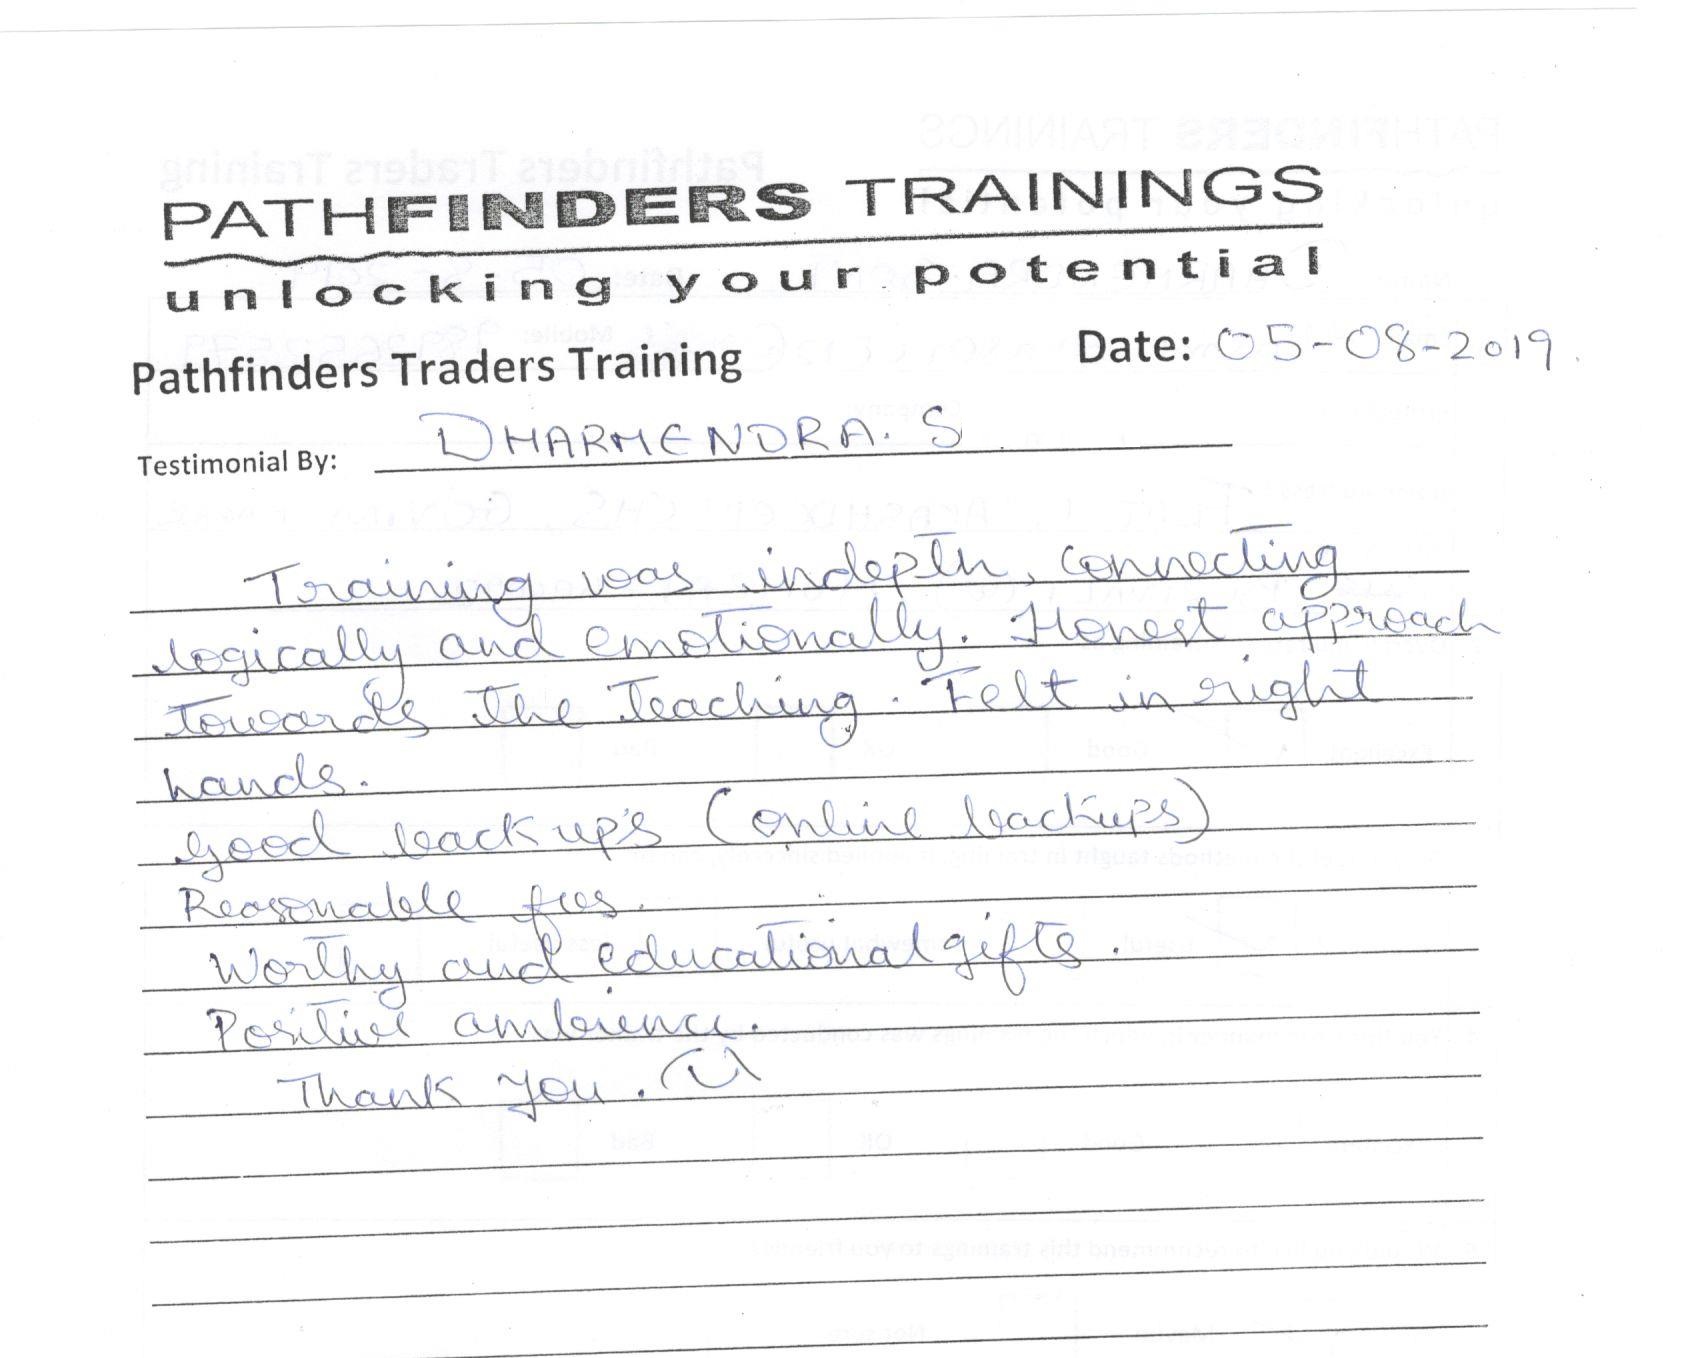 PATHFINDERS TRAININGS
unlocking your potential
Pathfinders Traders Training
Date: 05-08-2019.
Testimonial By: DHARMENDRA. S
Training was indepth, connecting
logically and emotionally. Honest approach
towards the teaching. Felt in right
hands.
Good back up's (online backups)
Reasonable fees.
Worthy and educational gifts.
Positive ambience.
Thank you.